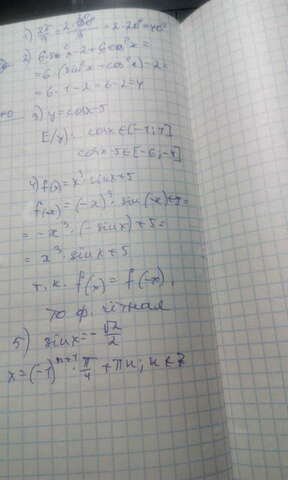 1) 2π/9 = 2·180°/9 = 2·20° = 40°
2) 6 sin²x - 2 + 6 cos²x =
= 6 (sin²x + cos²x) - 2 =
= 6·1 - 2 = 6 - 2 = 4
3) y = cosx - 5
E(y): cosx ∈ [-1; 1]
cosx - 5 ∈ [-6; -4]
4) f(x) = x³·sinx + 5
f(-x) = (-x)³·sin(-x) + 5 =
= -x³·(-sinx) + 5 =
= x³·sinx + 5
т.к. f(x) = f(-x),
то ф. чётная
5) sinx = -√2/2
x = (-1)ⁿ⁺¹·π/4 + πn; n ∈ Z